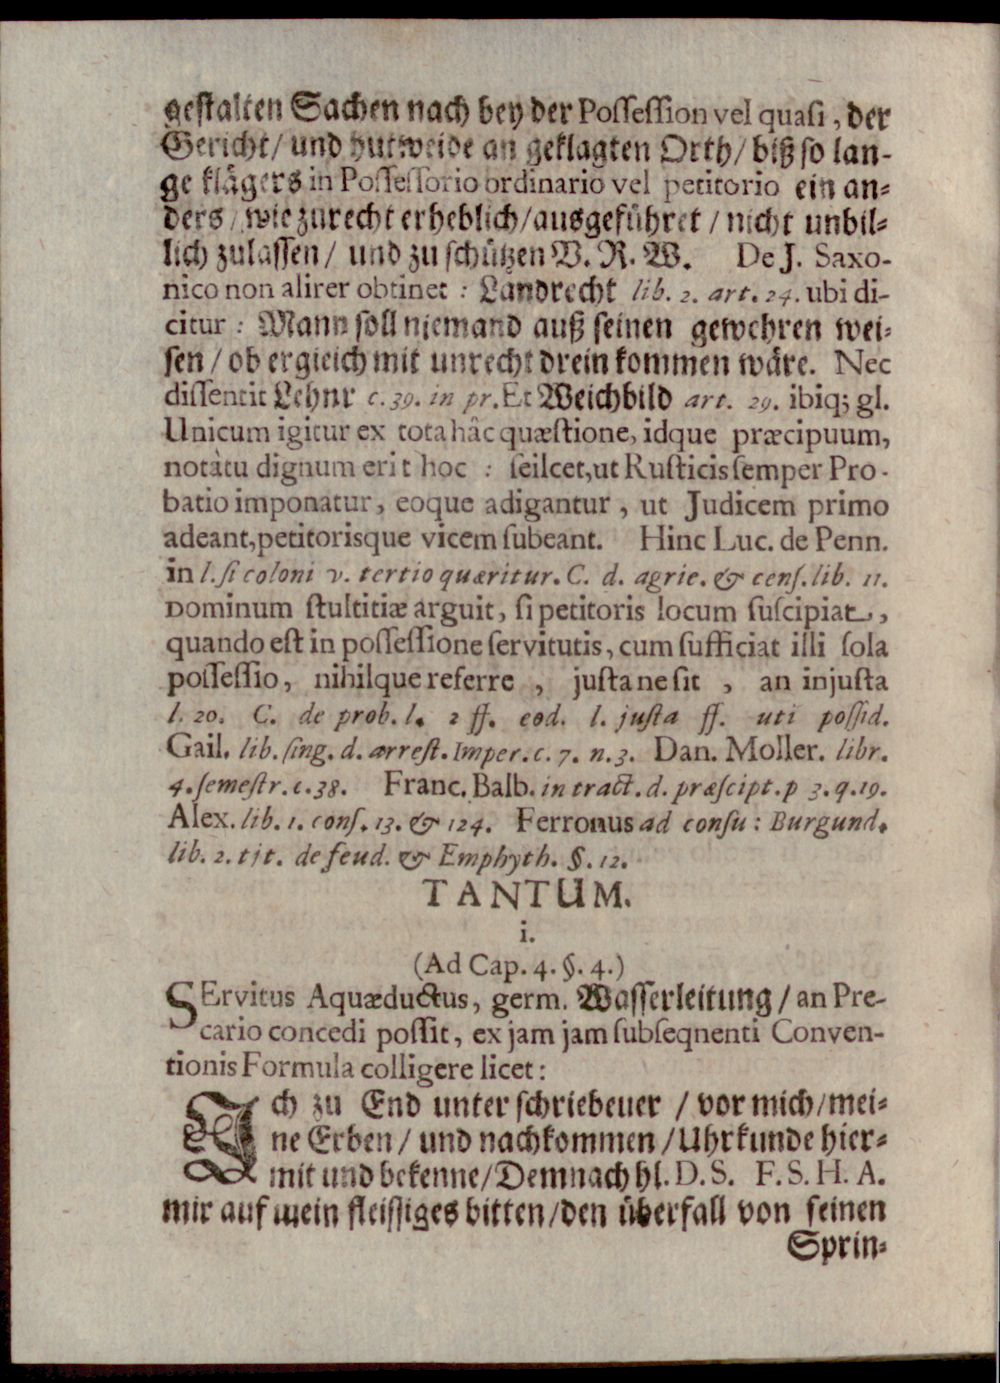 gestalten Sachen nach bey der Possession vel quasi, der
Gericht/ und hutweide an geklagten Orth/ biß so lan-
ge klägers in Possessorio ordinario vel petitorio ein an-
ders/ wie zurecht erheblich/ausgeführet / nicht unbil-
lich zulassen/ und zu schützen V. R. W. De J. Saxo-
nico non alirer obtinet : Landrecht lib. 2. art. 24. ubi di-
citur : Mann soll niemand auß seinen gewehren wei-
sen / ob ergleich mit unrecht drein kommen wäre. Nec
dissentit Lehnr c. 39. in pr. Et Weichbild art. 29. ibiq; gl.
Unicum igitur ex tota hâc quæstione, idque præcipuum,
notàtu dignum erit hoc : seilcet, ut Rusticis semper Pro-
batio imponatur, eoque adigantur, ut Judicem primo
adeant, petitorisque vicem subeant. Hinc Luc. de Penn.
in l. si coloni v. tertio quæritur. C. d. agric. & cens. lib. 11.
Dominum stultitiæ arguit, si petitoris locum suscipiat,
quando est in possessione servitutis, cum sufficiat illi sola
possessio, nihilque referre , justa ne sit , an injusta
l. 20. C. de prob. l. 2 ff. eod. l. justa ff. uti possid.
Gail. lib. sing. d. arrest. Imper. c. 7. n. 3. Dan. Moller. libr.
4. semestr. c. 38. Franc. Balb. in tract. d. præscipt. p 3. q. 19.
Alex. lib. 1. cons. 13. & 124. Ferronus ad consu : Burgund.
lib. 2. tit. de feud. & Emphyth. §. 12.
TANTUM.
i.
(Ad Cap. 4. §. 4.)
SErvitus Aquæductus, germ. Wasserleitung / an Pre-
cario concedi possit, ex jam jam subseqnenti Conven-
tionis Formula colligere licet:
Ich zu End unter schriebener / vor mich/ mei-
ne Erben / und nachkommen / Uhrkunde hier-
mit und bekenne/ Demnach hl. D. S. F. S. H. A.
mir auf mein fleissiges bitten/ den überfall von seinen
Sprin-